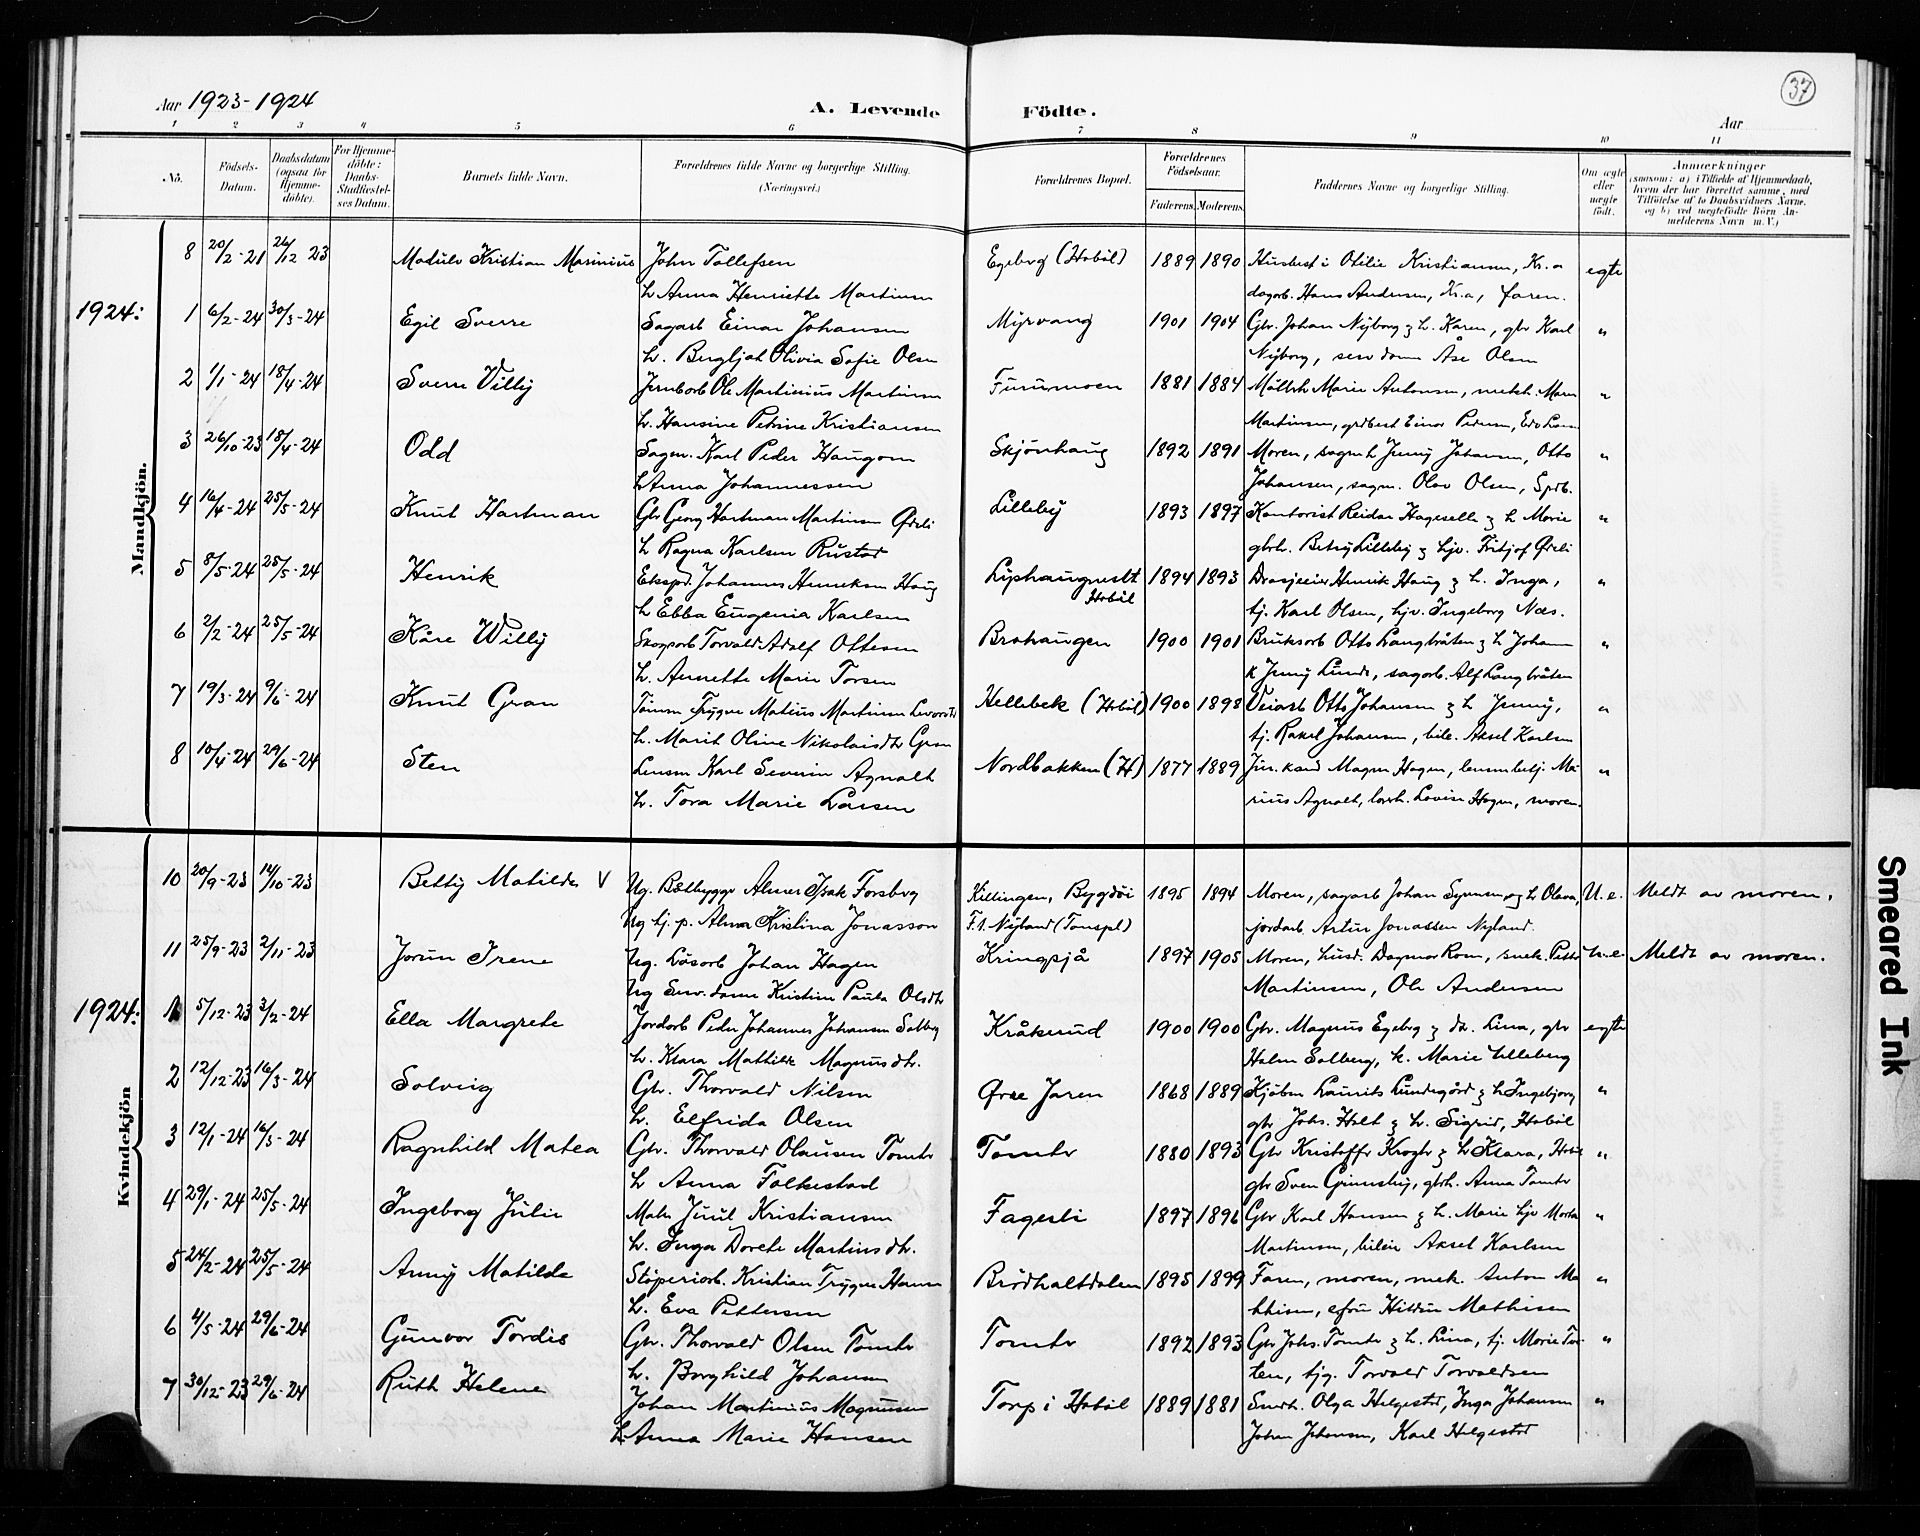 37
Aar 1923-1924
A. Levende Födte.
Aar
1 2 3 4 5 6 7 8 9 10 11
Nö.
Födsels-Datum.
Daabsdatum (ogsaa for Hjemme-döbte).
For Hjemme-döbte: Daabs-Stadfæstel-ses Datum.
Barnets fulde Navn.
Forældrenes fulde Navne og borgerlige Stilling. (Næringsvei.)
Forældrenes Bopæl.
Forældrenes Födselsaar.
Faderens. Moderens.
Faddernes Navne og borgerlige Stilling.
Om ægte eller uægte födt.
Anmærkninger
(saasom: a) i Tilfælde af Hjemmedaab, hvem der har forrettet samme, med Tilföielse af to Daabsvidners Navne, og b) ved uægtefödte Börn An-melderens Navn m. V.)
Mandkjön.
8 20/2-21 26/12 23 Kristian Marinius John Tollefsen Egeberg (Hoböl) 1889 1890 Otilie Kristiansen, Kr.a egte
h. Anna Henriette Martinsen dagarb. Hans Andersen, Kr.a, faren.
1924: 1 6/2-24 30/3-24 Egil Sverre Sagarb Einar Johansen Myrvang 1901 1904 Gbr. Johan Nyborg & h. Karen, gbr Karl "
h. Bergljot Olivia Sofie Olsen Nyborg, Åse Olsen
2 1/1-24 18/4-24 Sverre Villy Jernbarb Ole Martinius Martinsen Furumoen 1881 1884 Marie Antonsen, "
h. Hansine Petrine Kristiansen Martinsen, Einar Pedersen,
3 26/10-23 18/4-24 Odd Sagm. Karl Peder Haugom Skjönhaug 1892 1891 Moren, sagm h Jenny Johansen, Otto "
h Anna Johannessen Johansen, sagm. Olav Olsen, Spdb.
4 16/4-24 25/5-24 Knut Hartman Gbr Georg Hartman Martinsen Ødeli Lilleby 1893 1897 Kontorist Reidar Hageselle & h Marie "
h Ragna Karlsen Rustad gbrh. Betsy Lilleby & hjv. Fritjof Ødeli
5 8/5-24 25/5-24 Henrik Ekspd. Johannes Henriksen Haug 1894 1893 Henrik Haug & h. Inga, "
h Ebba Eugenia Karlsen Hoböl tj. Karl Olsen, hjv. Ingeborg Næs.
6 2/2-24 25/5-24 Kåre Willy Skogsarb Torvald Adolf Ottesen Brohaugen 1900 1901 Bruksarb Otto Langbråten & h Johan "
h. Annette Marie Torsen k Jenny Lunde, sagarb. Alf Langbråten
7 19/3-24 9/6-24 Knut Gran Tömm Trygve Matius Martinsen Hellebek (Hoböl) 1900 1898 Veiarb Otto Johansen & h Jenny, "
h. Marit Oline Nikolaisdtr Gran tj. Rakel Johansen, bile. Aksel Karlsen
8 10/4-24 29/6-24 Sten Lensm Karl Severin Agnalt Nordbakken (H) 1877 1889 Jur. kand Magne Hagen, lensmbetj. Ma- "
h. Tora Marie Larsen rius Agnalt, Lovise Hagen, moren.
Kvindekjön
10 20/9-23 14/10-23 Betty Matilde V Ug. Båtbygger Almer Isak Forsberg Killingen, Bygdöi 1895 1894 Moren, sagarb Johan & h Olava, U. e. Meldt av moren.
Ug tj. p. Alma Kristina Jonasson F. t. Nyland (Tomspl) jordarb. Artur Jonassen Nyland.
11 25/9-23 2/11-23 Jorun Irene Ug. Lösarb Johan Hagen Kringsjå 1897 1905 Moren, husd. Dagmar Rom, snek. Petter U. e. Meldt av moren.
Ug Serv. dame Kristine Paula Olsdtr Martinsen, Ole Andersen
1924: 1 5/12-23 3/2-24 Ella Margrete Jordarb Peder Johannes Johansen Solberg Kråkerud 1900 1900 Gbr. Magnus Egeberg & dtr. Lina, gbr egte
h. Klara Mathilde Magnusdtr. Halvor Solberg, k. Marie Lilleberg
2 12/12-23 16/3-24 Solveig Gbr. Thorvald Nilsen Øvre Jaren 1868 1889 Kjöbm Laurits Lundegård & h Ingeborg "
h. Elfrida Olsen gbr Johs. Holt & h. Sigrid, Hoböl
3 12/1-24 16/3-24 Ragnhild Matea Gbr. Thorvald Olausen Tomter Tomter 1880 1893 Gbr Kristoffer Krogh & h Klara, Hobøl "
h Anna Folkestad gbr Sven Grimsby, gbrh. Anna Tomter
4 29/1-24 25/5-24 Ingeborg Julie Maler Juul Kristiansen Fagerli 1897 1896 Gbr Karl Hansen & h. Marie hjv Marta "
h. Inga Dorete Martinsdtr. Martinsen, bileier Aksel Karlsen
5 24/2-24 25/5-24 Anny Matilde Stöperiarb. Kristian Trygve Hansen Brödholtdalen 1895 1899 Faren, moren, mek. Anton Ma- "
h. Eva Pettersen thisen, frøu Hildur Mathisen
6 4/5-24 29/6-24 Gunvor Tordis Gbr. Thorvald Olsen Tomter Tomter 1892 1893 Gbr Johs. Tomter & h. Lina, tj. Marie "
h. Borghild Johansen tjg. Torvald Torvaldsen
7 30/12-23 29/6-24 Ruth Helene Johan Martinius Magnussen Torp i Hobøl 1889 1881 Smdh. Olga Helgestad, Inga Johansen "
h. Anna Marie Hansen Johan Johansen, Karl Helgestad
Smeared Ink